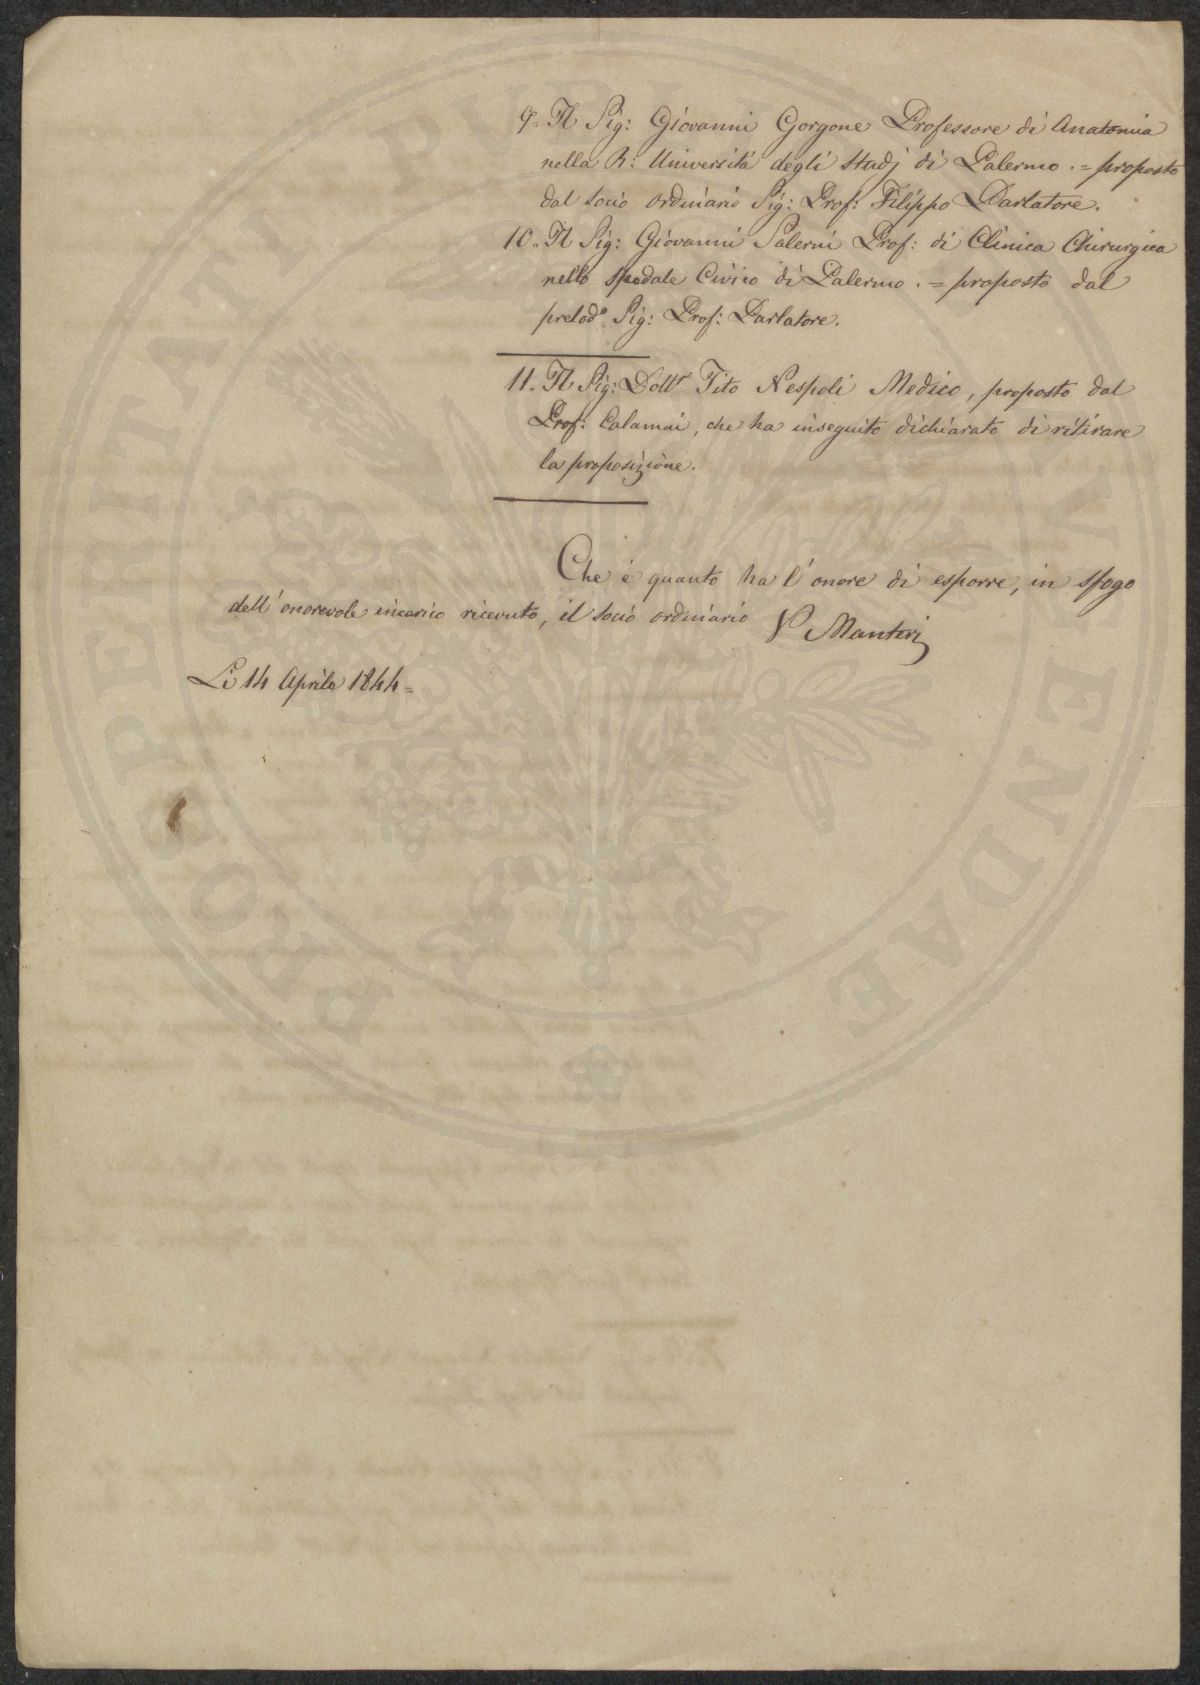 9= Il Sig: Giovanni Gorgone Professore di Anatomia
nella R: Università degli Studj di Palermo .= proposto
dal socio ordinario Sig: Prof: Filippo Parlatore.
10.. Il Sig: Giovanni Salerni Prof: di Clinica Chirurgica
nello spedale Civico di Palermo .= proposto dal
prelodo Sig: Prof: Parlatore.
11.. Il Sig: Dottr Tito Nespoli Medico, proposto dal
Prof: Calamai, che ha inseguito dichiarato di ritirare
la proposizione.
Che è quanto ha l'onore di esporre, in sfogo
dell'onorevole incarico ricevuto, il socio ordinario V Manteri
Li 14 Aprile 1844=
PROSPERITATI PUBLICAE AUGENDAE